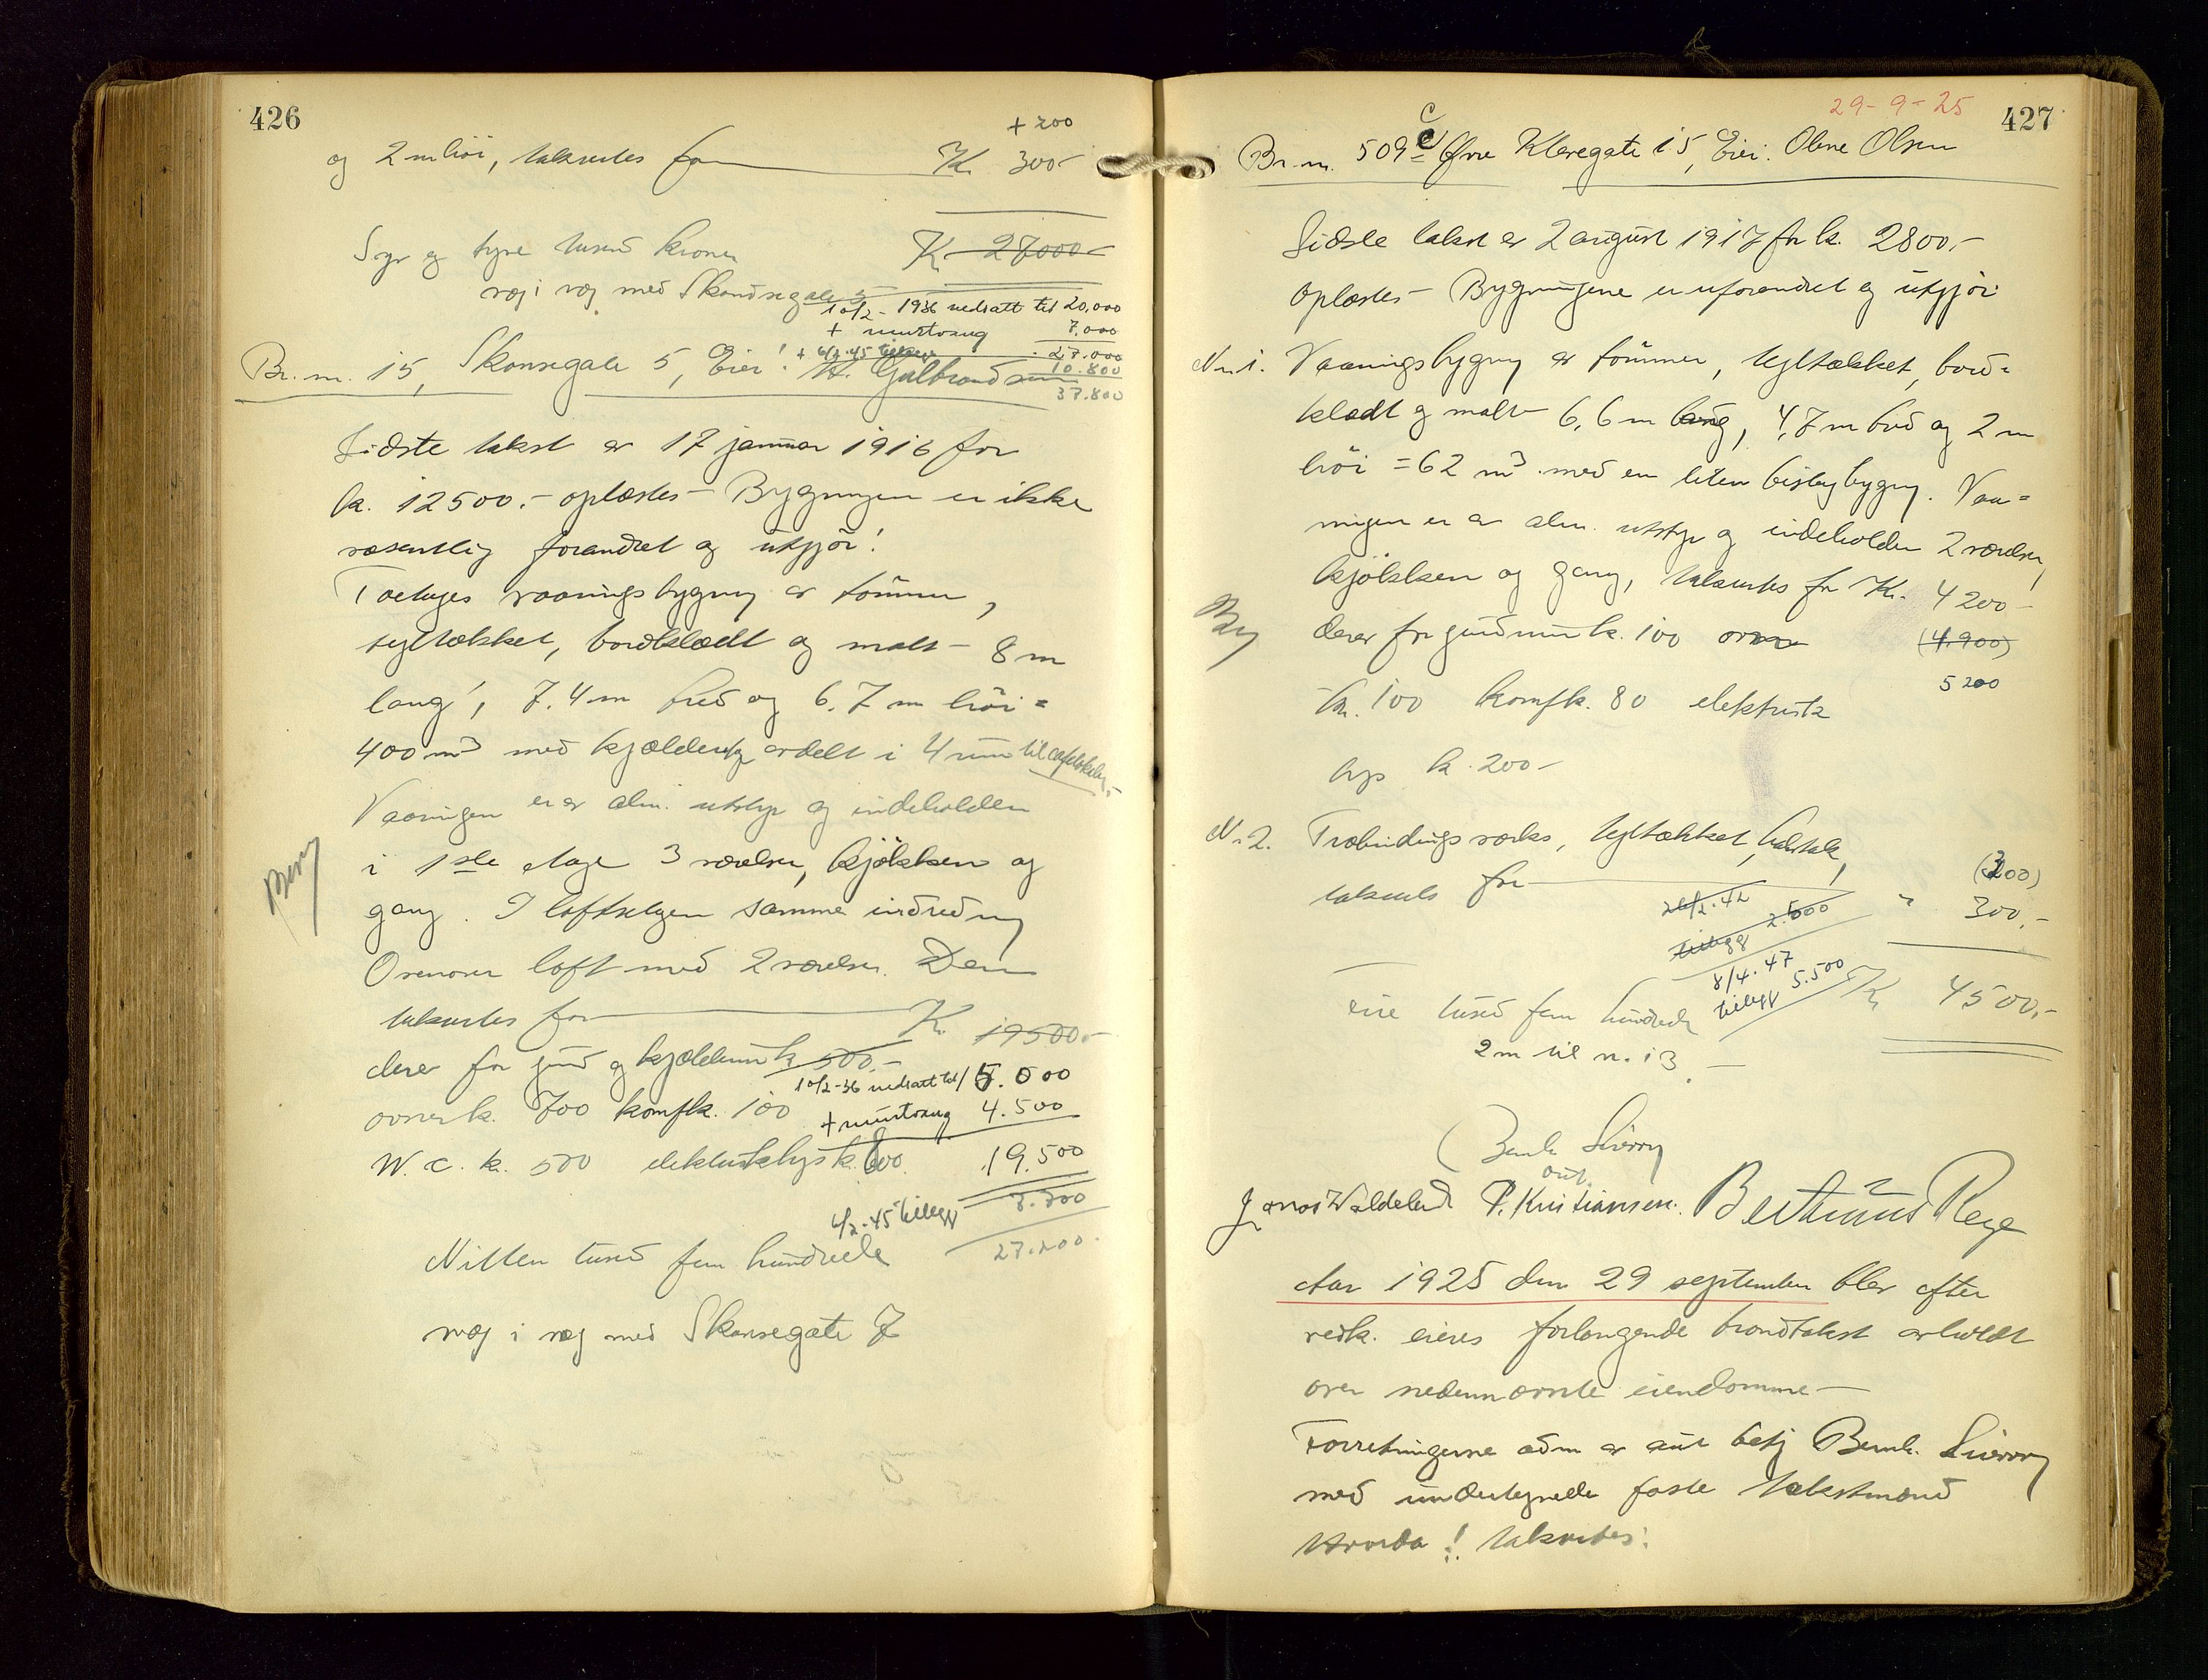 426
+ 200
og 2 m høi, takseres for Kr. 300.-
Syv og tyve tusend kroner Kr. 27000.-
væg i væg med Skandsegate 5
10/2 - 1936 nedsatt til 20,000
+ murtvang 7.000
27.000
+ 6/2.45 tillegg 10.800
37.800
Br. nr. 15, Skansegate 5, Eier! H. Gulbrandsen
Sidste takst er 17 januar 1916 for
kr. 12500.- oplæstes - Bygningen er ikke
væsentlig forandret og utgjør!
Toetages vaaningsbygning av tømmer,
tegltækket, bordklædt og malt - 8 m
lang, 7.4 m bred og 6.7 m høi =
400 m³ med kjælder avdelt i 4 rum
Vaaningen er av alm. utstyr og indeholder
i 1ste etage 3 værelser, kjøkken og
Berg
gang. I loftsetagen samme indredning
Ovenover loft med 2 værelser. Den
takseres for Kr. 19500.-
derav for grund og kjældermur k 500.-
10/2-36 nedsatt til 15.000
ovner k. 700 komf k. 100
+ murtvang 4.500
W.C. k. 500 elektrisk lys k. 800.
19.500
6/2.45 tillegg 7.700
27.200
Nitten tusend fem hundrede
væg i væg med Skansegate 7
29-9-25
427
Br. nr. 509 c Øvre Kleivegate 15, Eier. Olene Olsen
Sidste takst er 2 august 1917 for k. 2800.-
oplæstes - Bygningene er uforandret og utgjør
Nr. 1. Vaaningsbygning av tømmer, tegltækket, bord=
klædt og malt 6,6 m lang, 4,7 m bred og 2 m
høi = 62 m³ med en liten bislagbygning. Vaa=
ningen er av alm. utstyr og indeholder 2 værelser,
kjøkken og gang, takseres for Kr. 4200-
Berg
derav for grundmur k. 100 ovner
(4.900)
5200
kr. 100 komf k. 80 elektrisk
lys k. 200-
N. 2. Træbindingsverks, tegltækket, halvtak,
(200)
takseres for " 300,-
26/2.42
tillegg 2.500
8/4.47
tillegg 5.500
Fire tusend fem hundrede Kr. 4500,-
2 m til n. 13.
Bernh. Sivertz
aut.
Jonas Waldeland P. Kristiansen. Bertinius Rege
Aar 1925 den 29 september blev efter
vedk. eieres forlangende brandtakst avholdt
over nedennævnte eiendomme -
Forretningerne adm av aut betj Bernh. Sivertz
med undertegnede faste takstmænd
Hvorda! takseres: